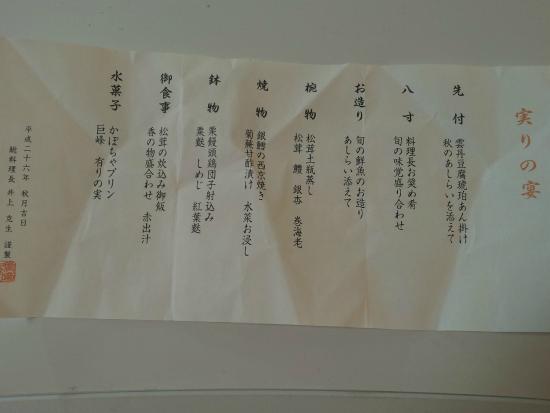 実りの宴
先付
雲丹豆腐琥珀あん掛け
秋のあしらいを添えて
八寸
料理長お奨め肴
旬の味覚盛り合わせ
お造り
旬の鮮魚のお造り
あしらい添えて
椀物
松茸土瓶蒸し
松茸 鱧 銀杏 巻海老
焼物
銀鱈の西京焼き
菊蕪甘酢漬け 水菜お浸し
鉢物
栗饅頭鶏団子射込み
粟麩 しめじ 紅葉麩
御食事
松茸の炊込み御飯
香の物盛合わせ 赤出汁
水菓子
かぼちゃプリン
巨峰 有りの実
平成二十六年 秋月吉日
総料理長 井上 克生 謹製